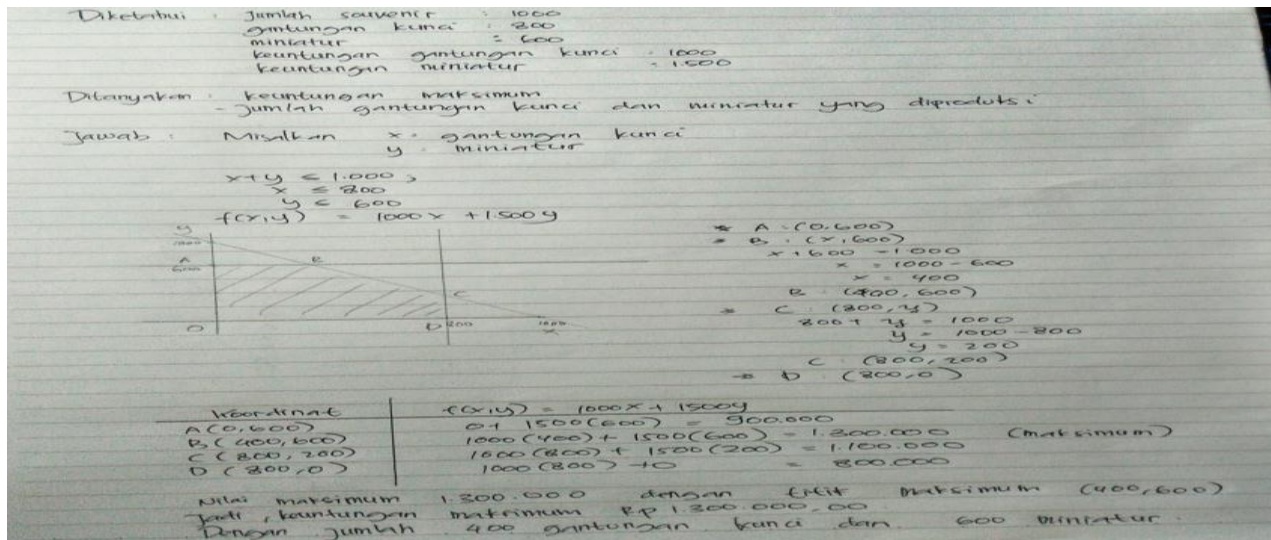 Diketahui : Jumlah souvenir : 1000
gantungan kunci : 800
miniatur = 600
keuntungan gantungan kunci : 1000
keuntungan miniatur = 1.500
Ditanyakan : keuntungan maksimum
- Jumlah gantungan kunci dan miniatur yang diproduksi
Jawab : Misalkan x = gantungan kunci
y = miniatur
x+y ≤ 1.000 ;
x ≤ 800
y ≤ 600
f(x,y) = 1000 x + 1.500 y
y
1000
A
600
B
C
O
D 800
1000
x
* A : (0,600)
* B : (x,600)
x + 600 = 1.000
x = 1000 - 600
x = 400
B (400, 600)
* C : (800, y)
800 + y = 1000
y = 1000 - 800
y = 200
C : (800, 200)
* D : (800,0)
koordinat f(x,y) = 1000x + 1500y
A (0,600) 0 + 1500(600) = 900.000
B (400, 600) 1000 (400) + 1500 (600) = 1.300.000 (maksimum)
C (800, 200) 1000 (800) + 1500 (200) = 1.100.000
D (800,0) 1000 (800) + 0 = 800.000
Nilai maksimum 1.300.000 dengan titik maksimum (400,600)
Jadi, keuntungan maksimum Rp 1.300.000,00
Dengan jumlah 400 gantungan kunci dan 600 miniatur.